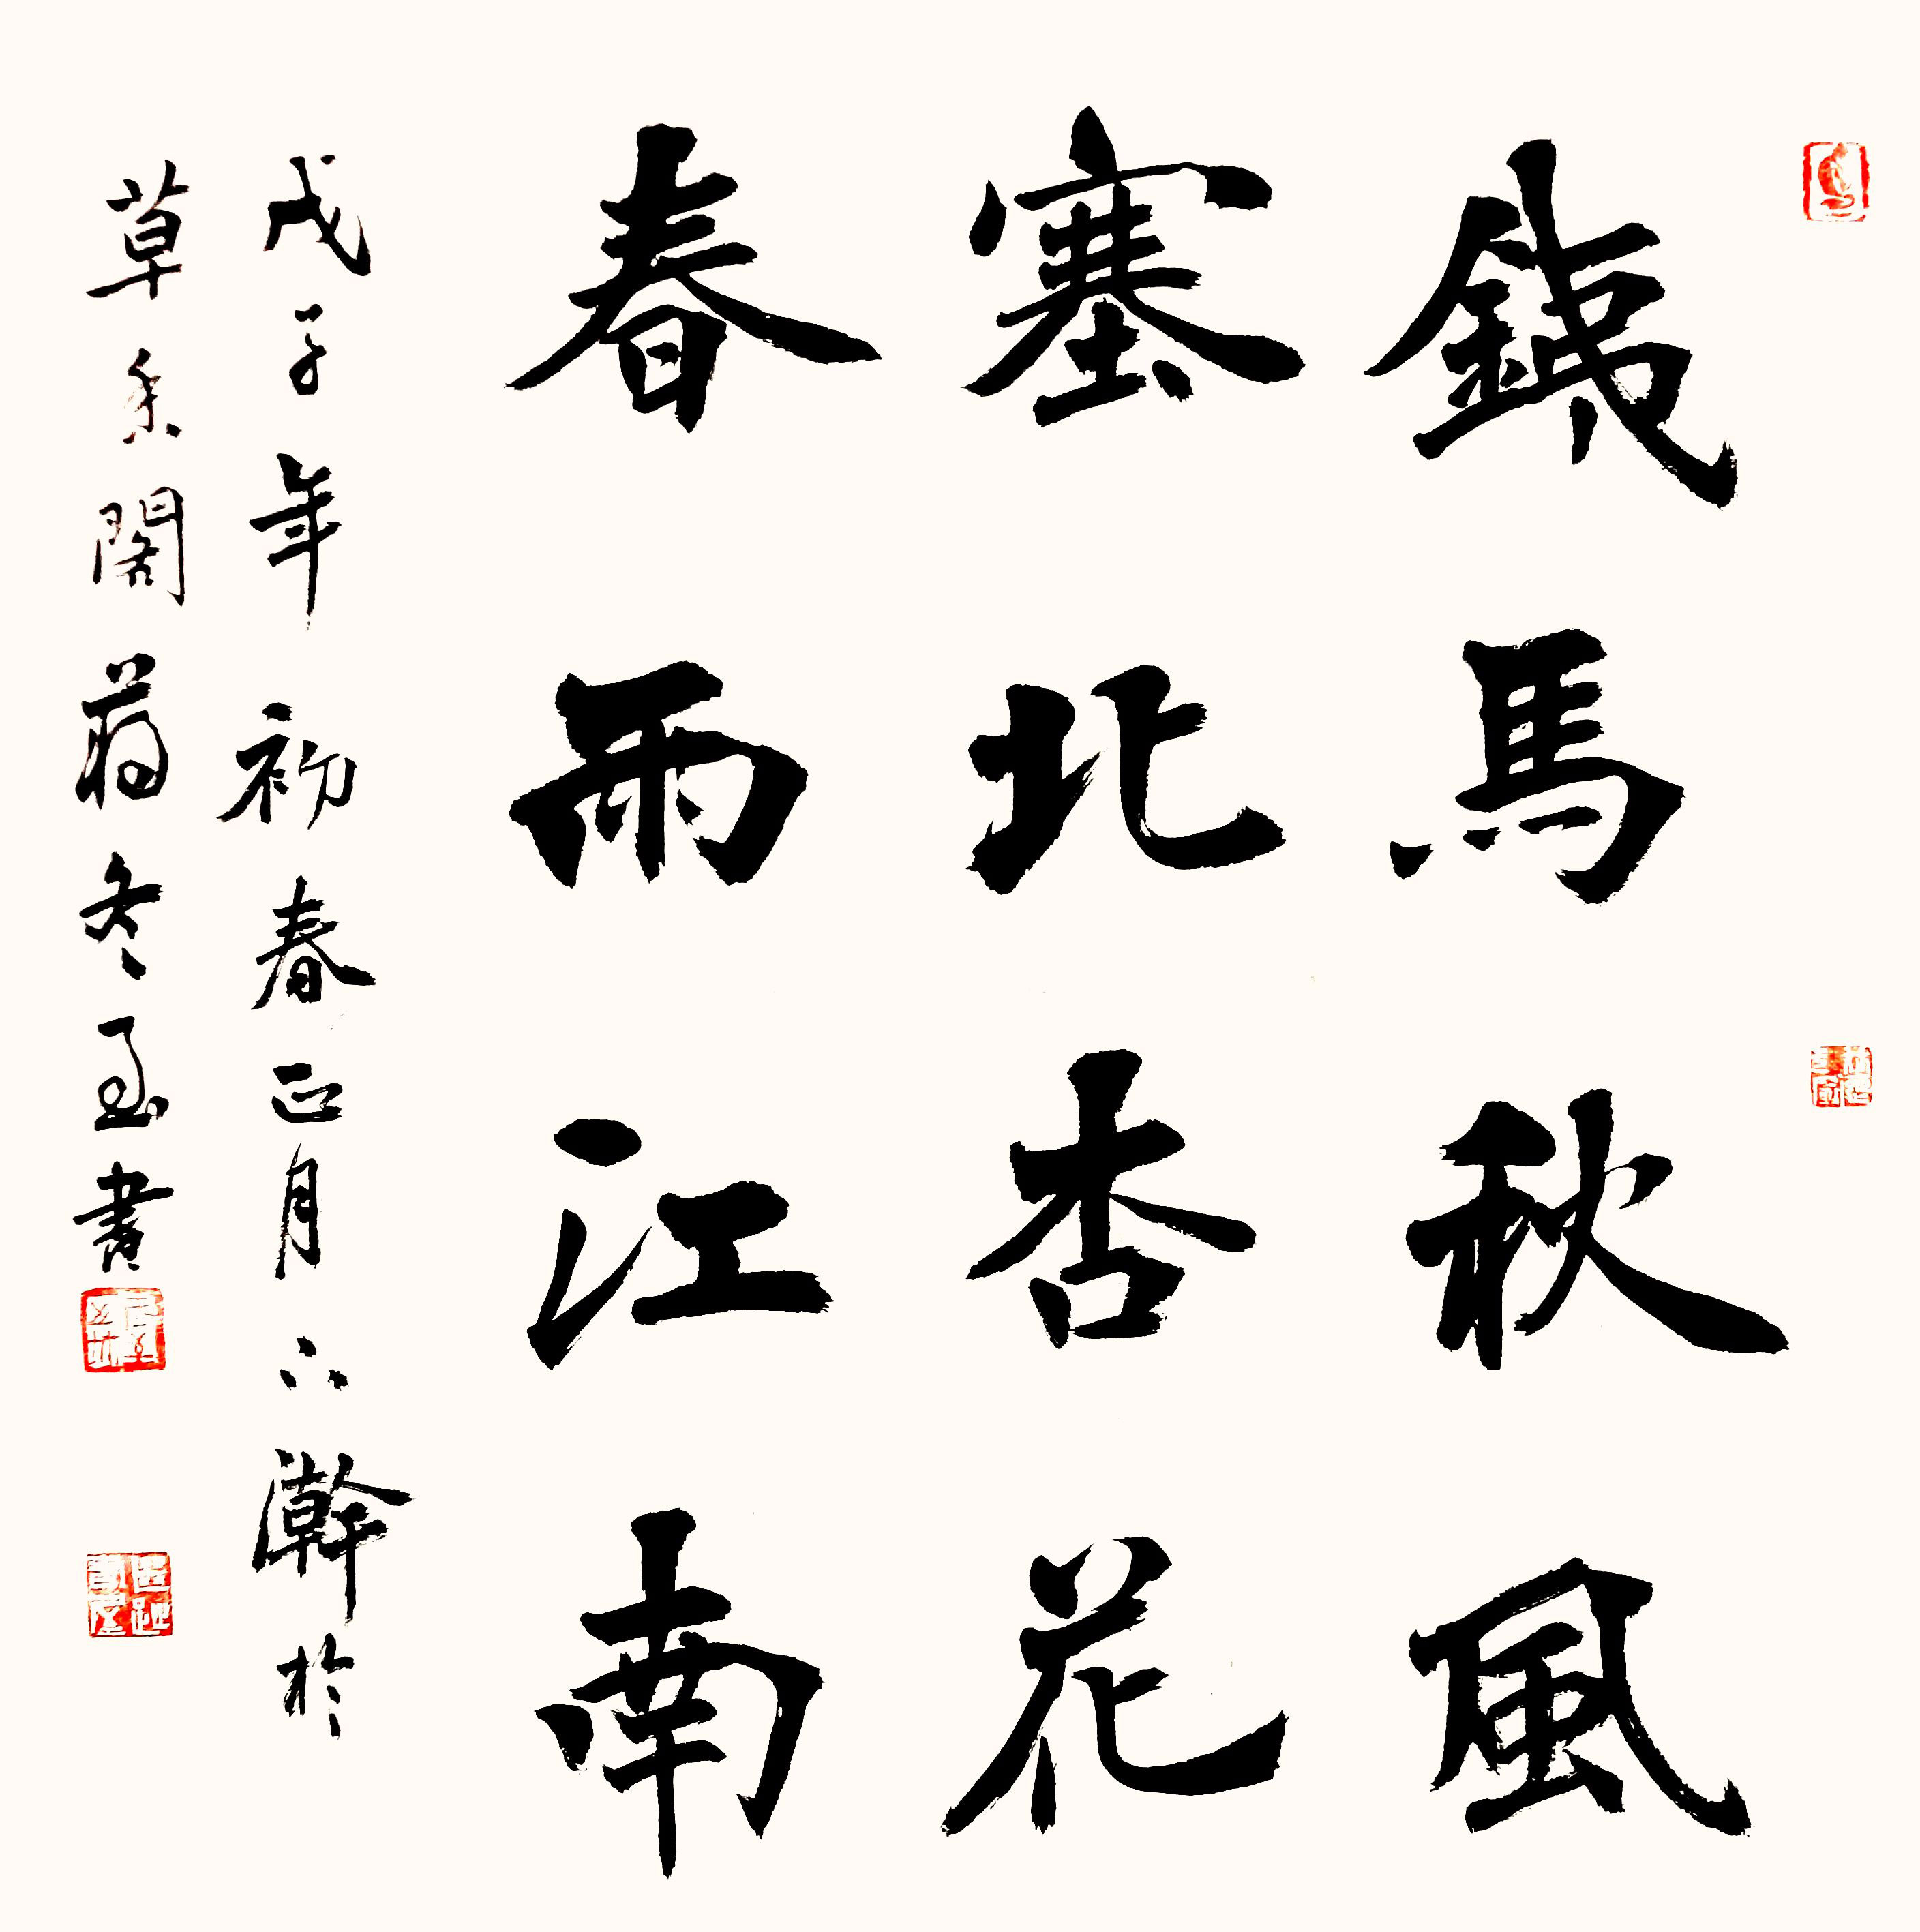 鐵馬秋風
塞北杏花
春雨江南
戊子年初春正月六澣於
草系閣若冬玉書